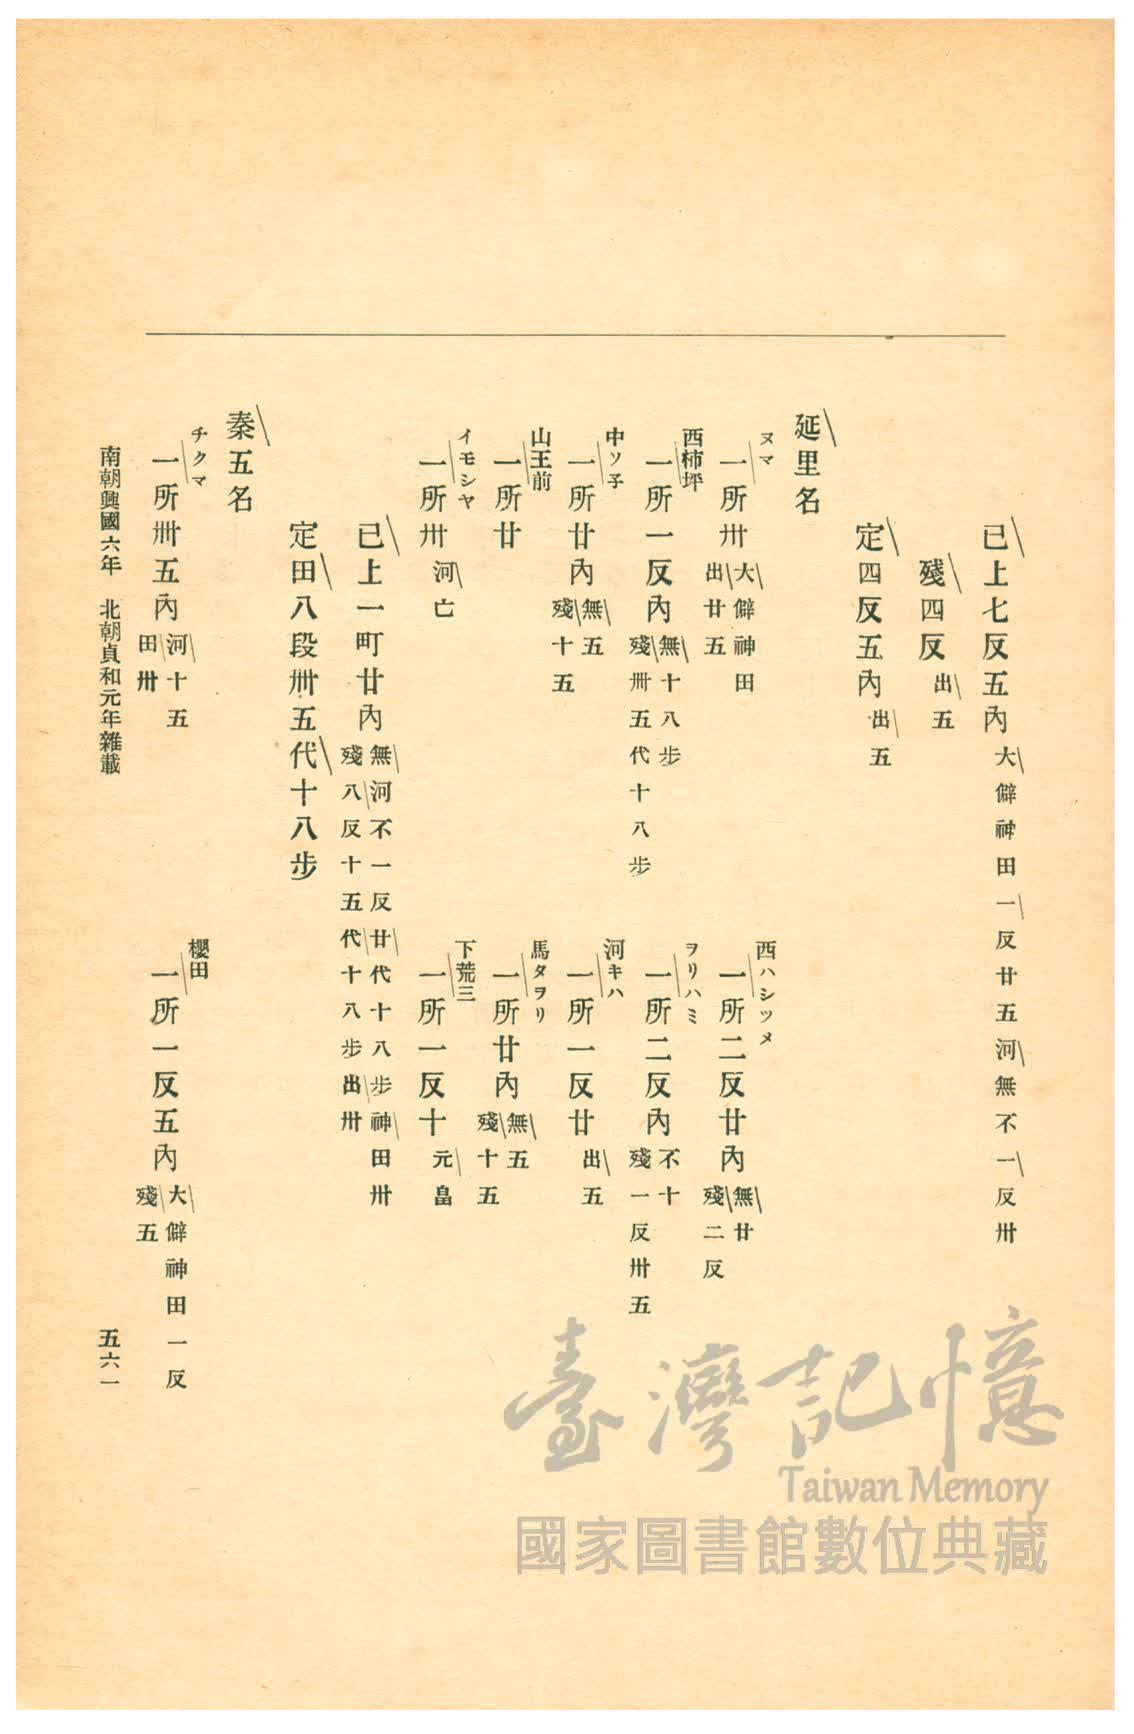 已上七反五內大僻神田一反廿五河無不一反卅
殘四反出五
定四反五內出五
延里名
ヌマ
一所卅大僻神田
出廿五
西ハシツメ
一所二反廿內無廿
殘二反
西柿坪
一所一反內無十八步
殘卌五代十八步
ヲリハミ
一所二反內不十
殘一反卅五
中ソ子
一所廿內無五
殘十五
河キハ
一所一反廿出五
山王前
一所廿
馬タヲリ
一所廿內無五
殘十五
イモシヤ
一所卅河亡
下荒三
一所一反十元畠
已上一町廿內無河不一反廿代十八步神田卅
殘八反十五代十八步出卅
定田八段卌五代十八步
秦五名
チクマ
一所卌五內河十五
田卅
櫻田
一所一反五內大僻神田一反
殘五
南朝興國六年　北朝貞和元年雜載
五六一
臺灣記憶
Taiwan Memory
國家圖書館數位典藏